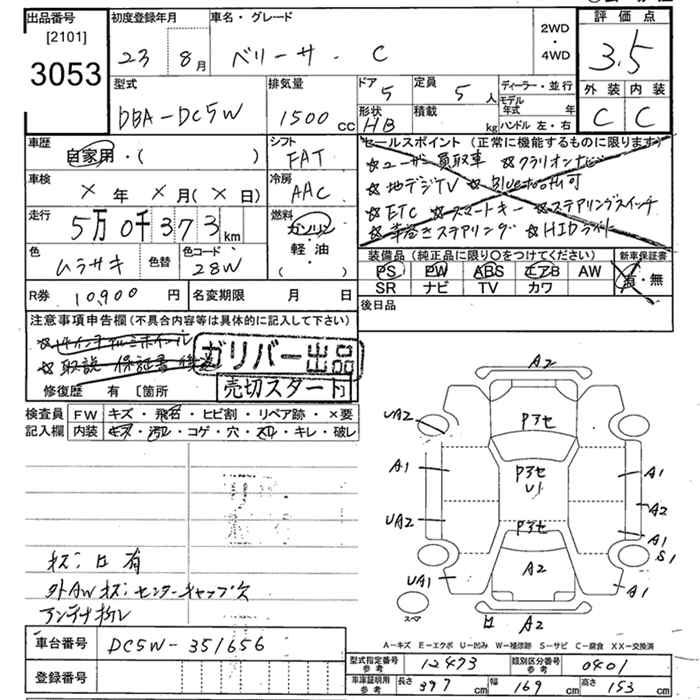 出品番号 初度登録年月 車名・グレード 評価点
[2101]
3053
23 8月 ベリーサ・C 2WD・4WD 3.5
型式 排気量 ドア 5 定員 5人 ディーラー・並行 外装 内装
DBA-DC5W 1500cc 形状 HB 積載 kg モデル年式 年 C C
ハンドル 左・右
車歴 シフト セールスポイント(正常に機能するものに限ります)
自家用・( ) FAT ☆ユーザー買取車 ☆クラリオンナビ
車検 冷房 ☆地デジTV ☆Bluetooth可
×年×月(×日) AAC ☆ETC ☆スマートキー ☆ステアリングスイッチ
走行 燃料 ☆革巻きステアリング ☆HIDライト
5万0千373km ガソリン・軽・油( )
色 色替 色コード 装備品(純正品に限り○をつけてください) 新車保証書
ムラサキ 28W PS PW ABS エアB AW 有・無
SR ナビ TV カワ
R券 10,900円 名変期限 月 日 後日品
注意事項申告欄(不具合内容等は具体的に記入して下さい)
☆取説 保証書
ガリバー出品
売切スタート
修復歴 有 [箇所
検査員 FW キズ・飛石・ヒビ割・リペア跡・×要
記入欄 内装 キズ・汚レ・コゲ・穴・スレ・キレ・破レ
A2
UA2 Pアセ
A1 Pアセ A1
U1
A2
UA2 Pアセ A1
S1
UA1 A2 A1
スペア
A2
キズ:ロ有
外AWキズ:センターキャップ欠
アンテナ折レ
A-キズ E-エクボ U-凹み W-補修跡 S-サビ C-腐食 XX-交換済
車台番号 DC5W-351656
型式指定番号 参考 12473 類別区分番号 参考 0401
登録番号
車庫証明用 参考 長さ 397cm 幅 169cm 高さ 153cm